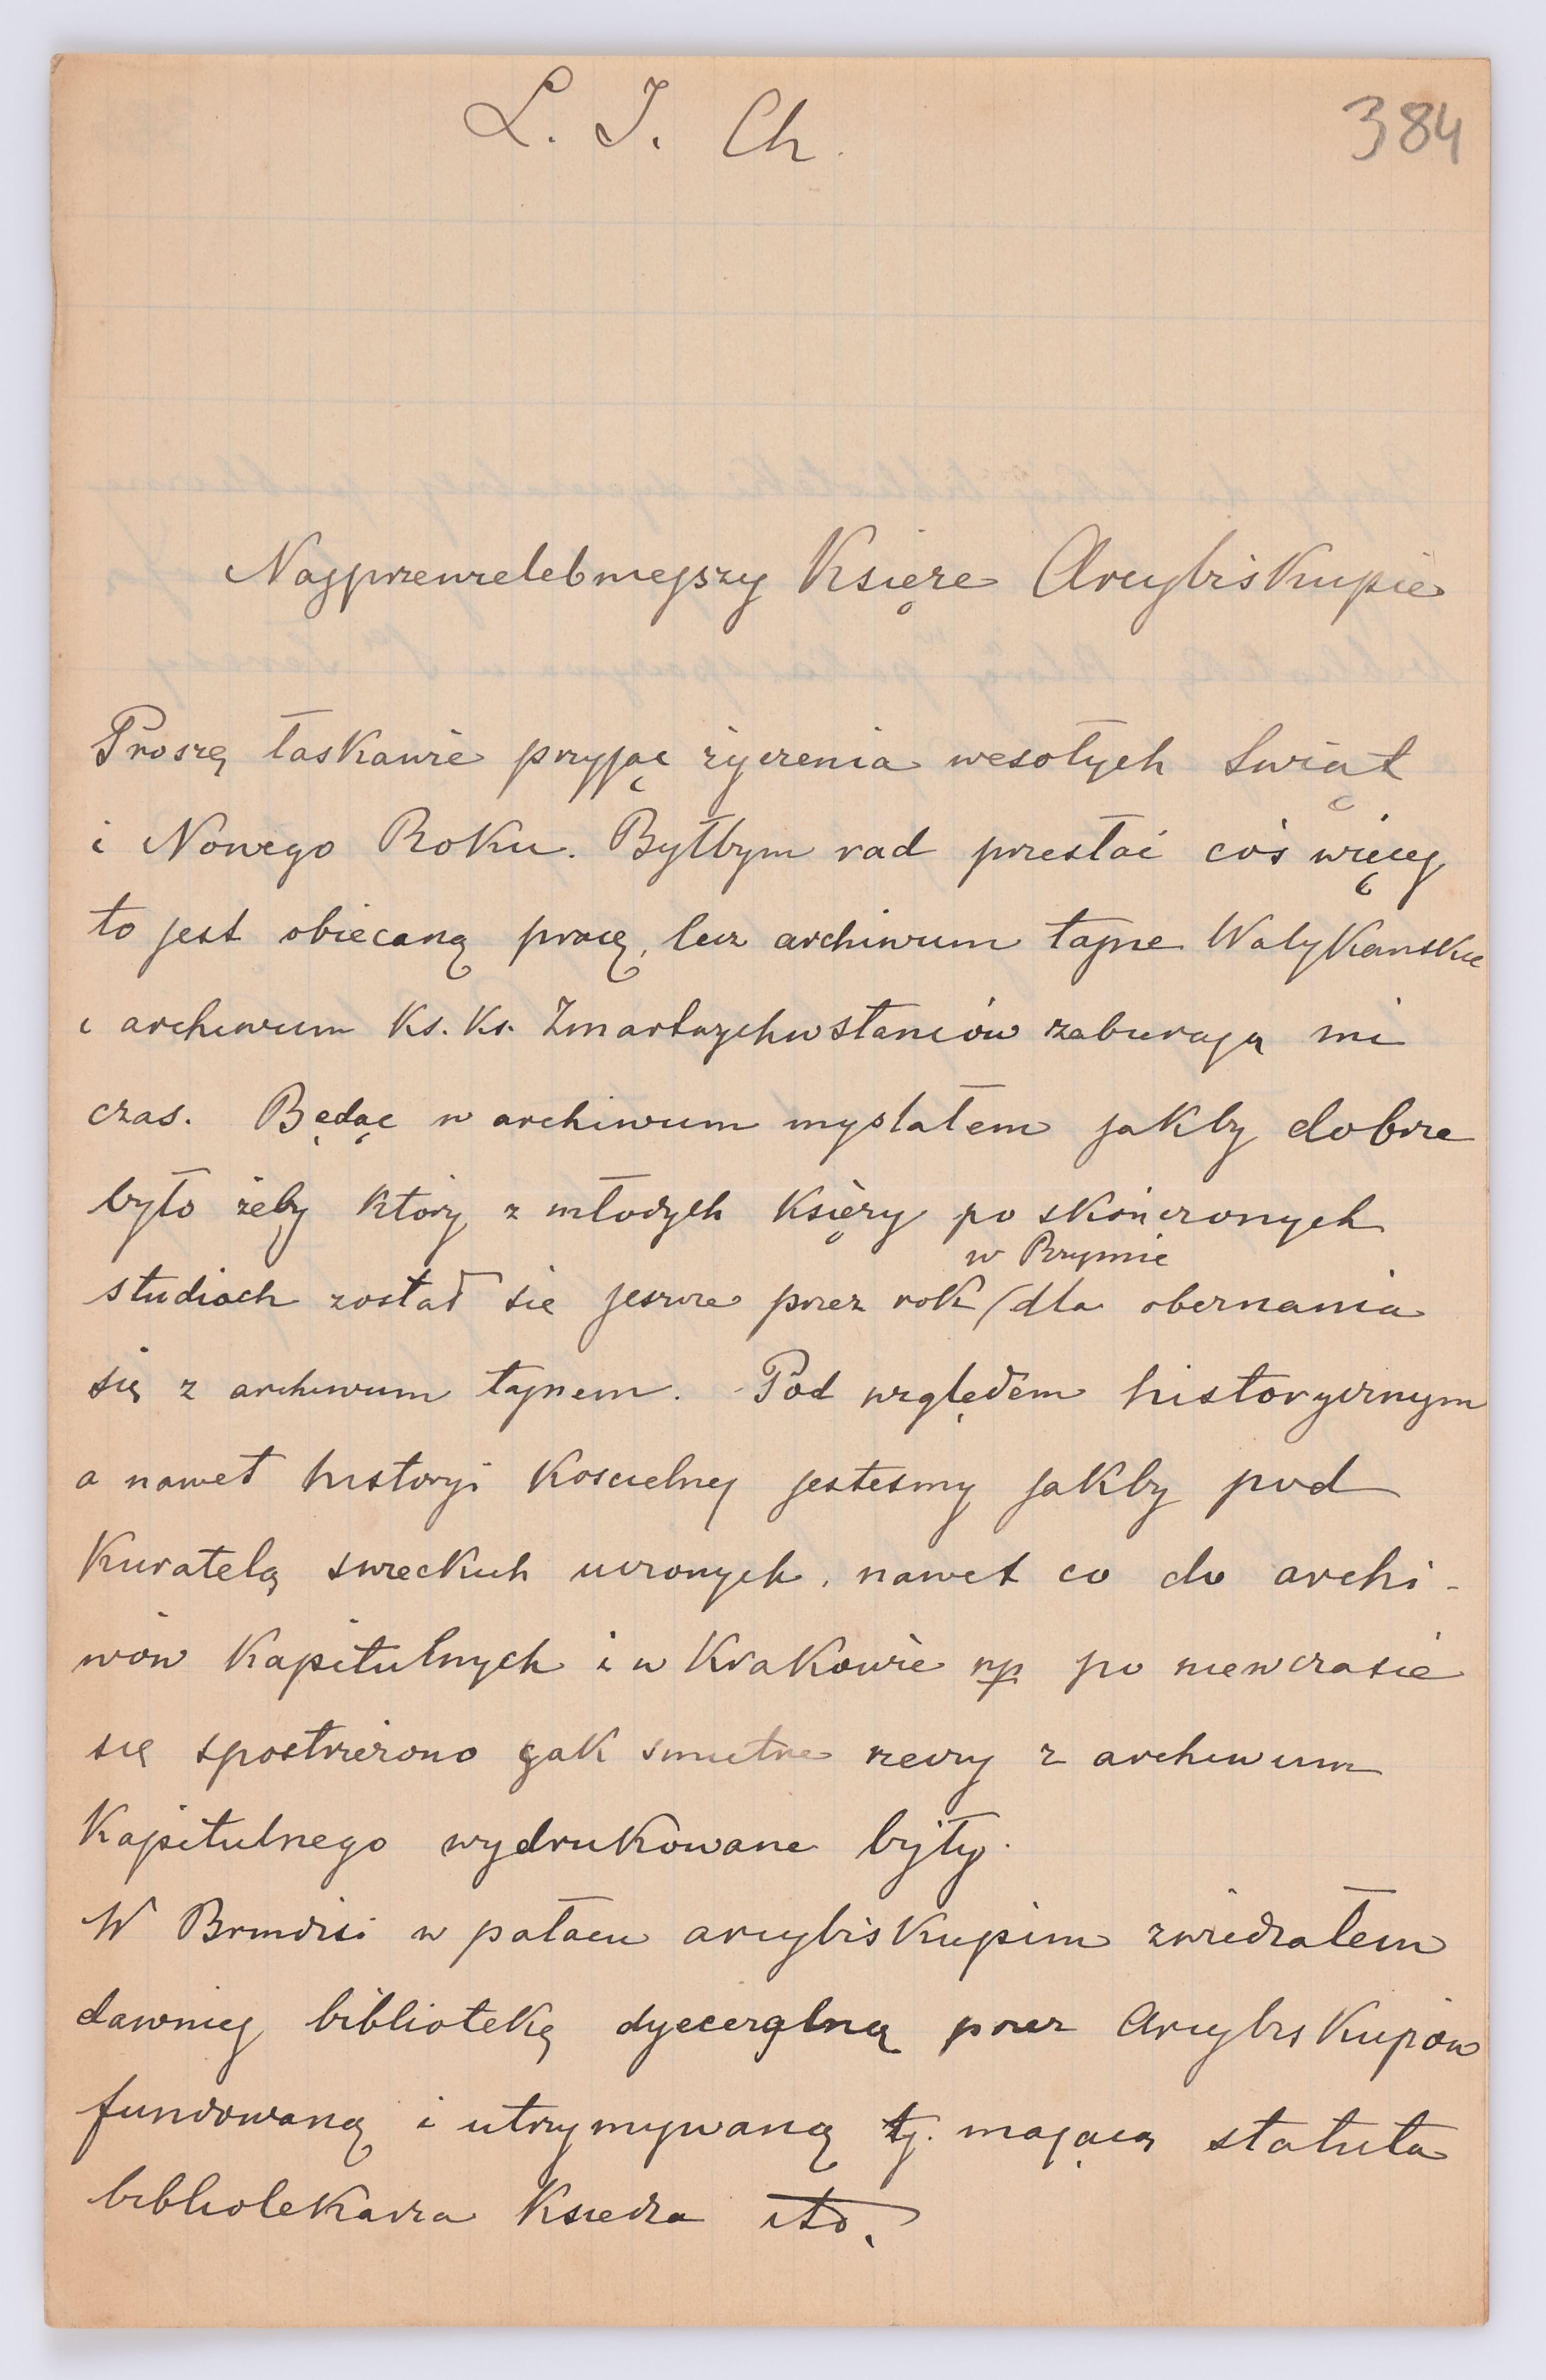 L. J. Ch.
384
Najprzewielebniejszy Księże Arcybiskupie
Proszę łaskawie przyjąć życzenia wesołych Świąt
i Nowego Roku. Byłbym rad przesłać coś więcej
to jest obiecaną pracę, lecz archiwum tajne Watykańskie
i archiwum Ks. Ks. Zmartwychwstańców zabierają mi
czas. Będąc w archiwum myślałem jakby dobrze
było żeby który z młodych księży po skończonych
w Rzymie
studiach został się jeszcze przez rok (dla obeznania
się z archiwum tajnem. Pod względem historycznym
a nawet historyi kościelnej jesteśmy jakby pod
kuratelą świeckich uczonych, nawet co do archi-
wów kapitulnych i w Krakowie np po niewczasie
się spostrzeżono jak smutne rzeczy z archiwum
Kapitulnego wydrukowane były.
W Brindisi w pałacu arcybiskupim zwiedzałem
dawniej bibliotekę dyecezalną przez Arcybiskupów
fundowaną i utrzymywaną tj. mającą statuta
bibliotekarza Księdza itd.